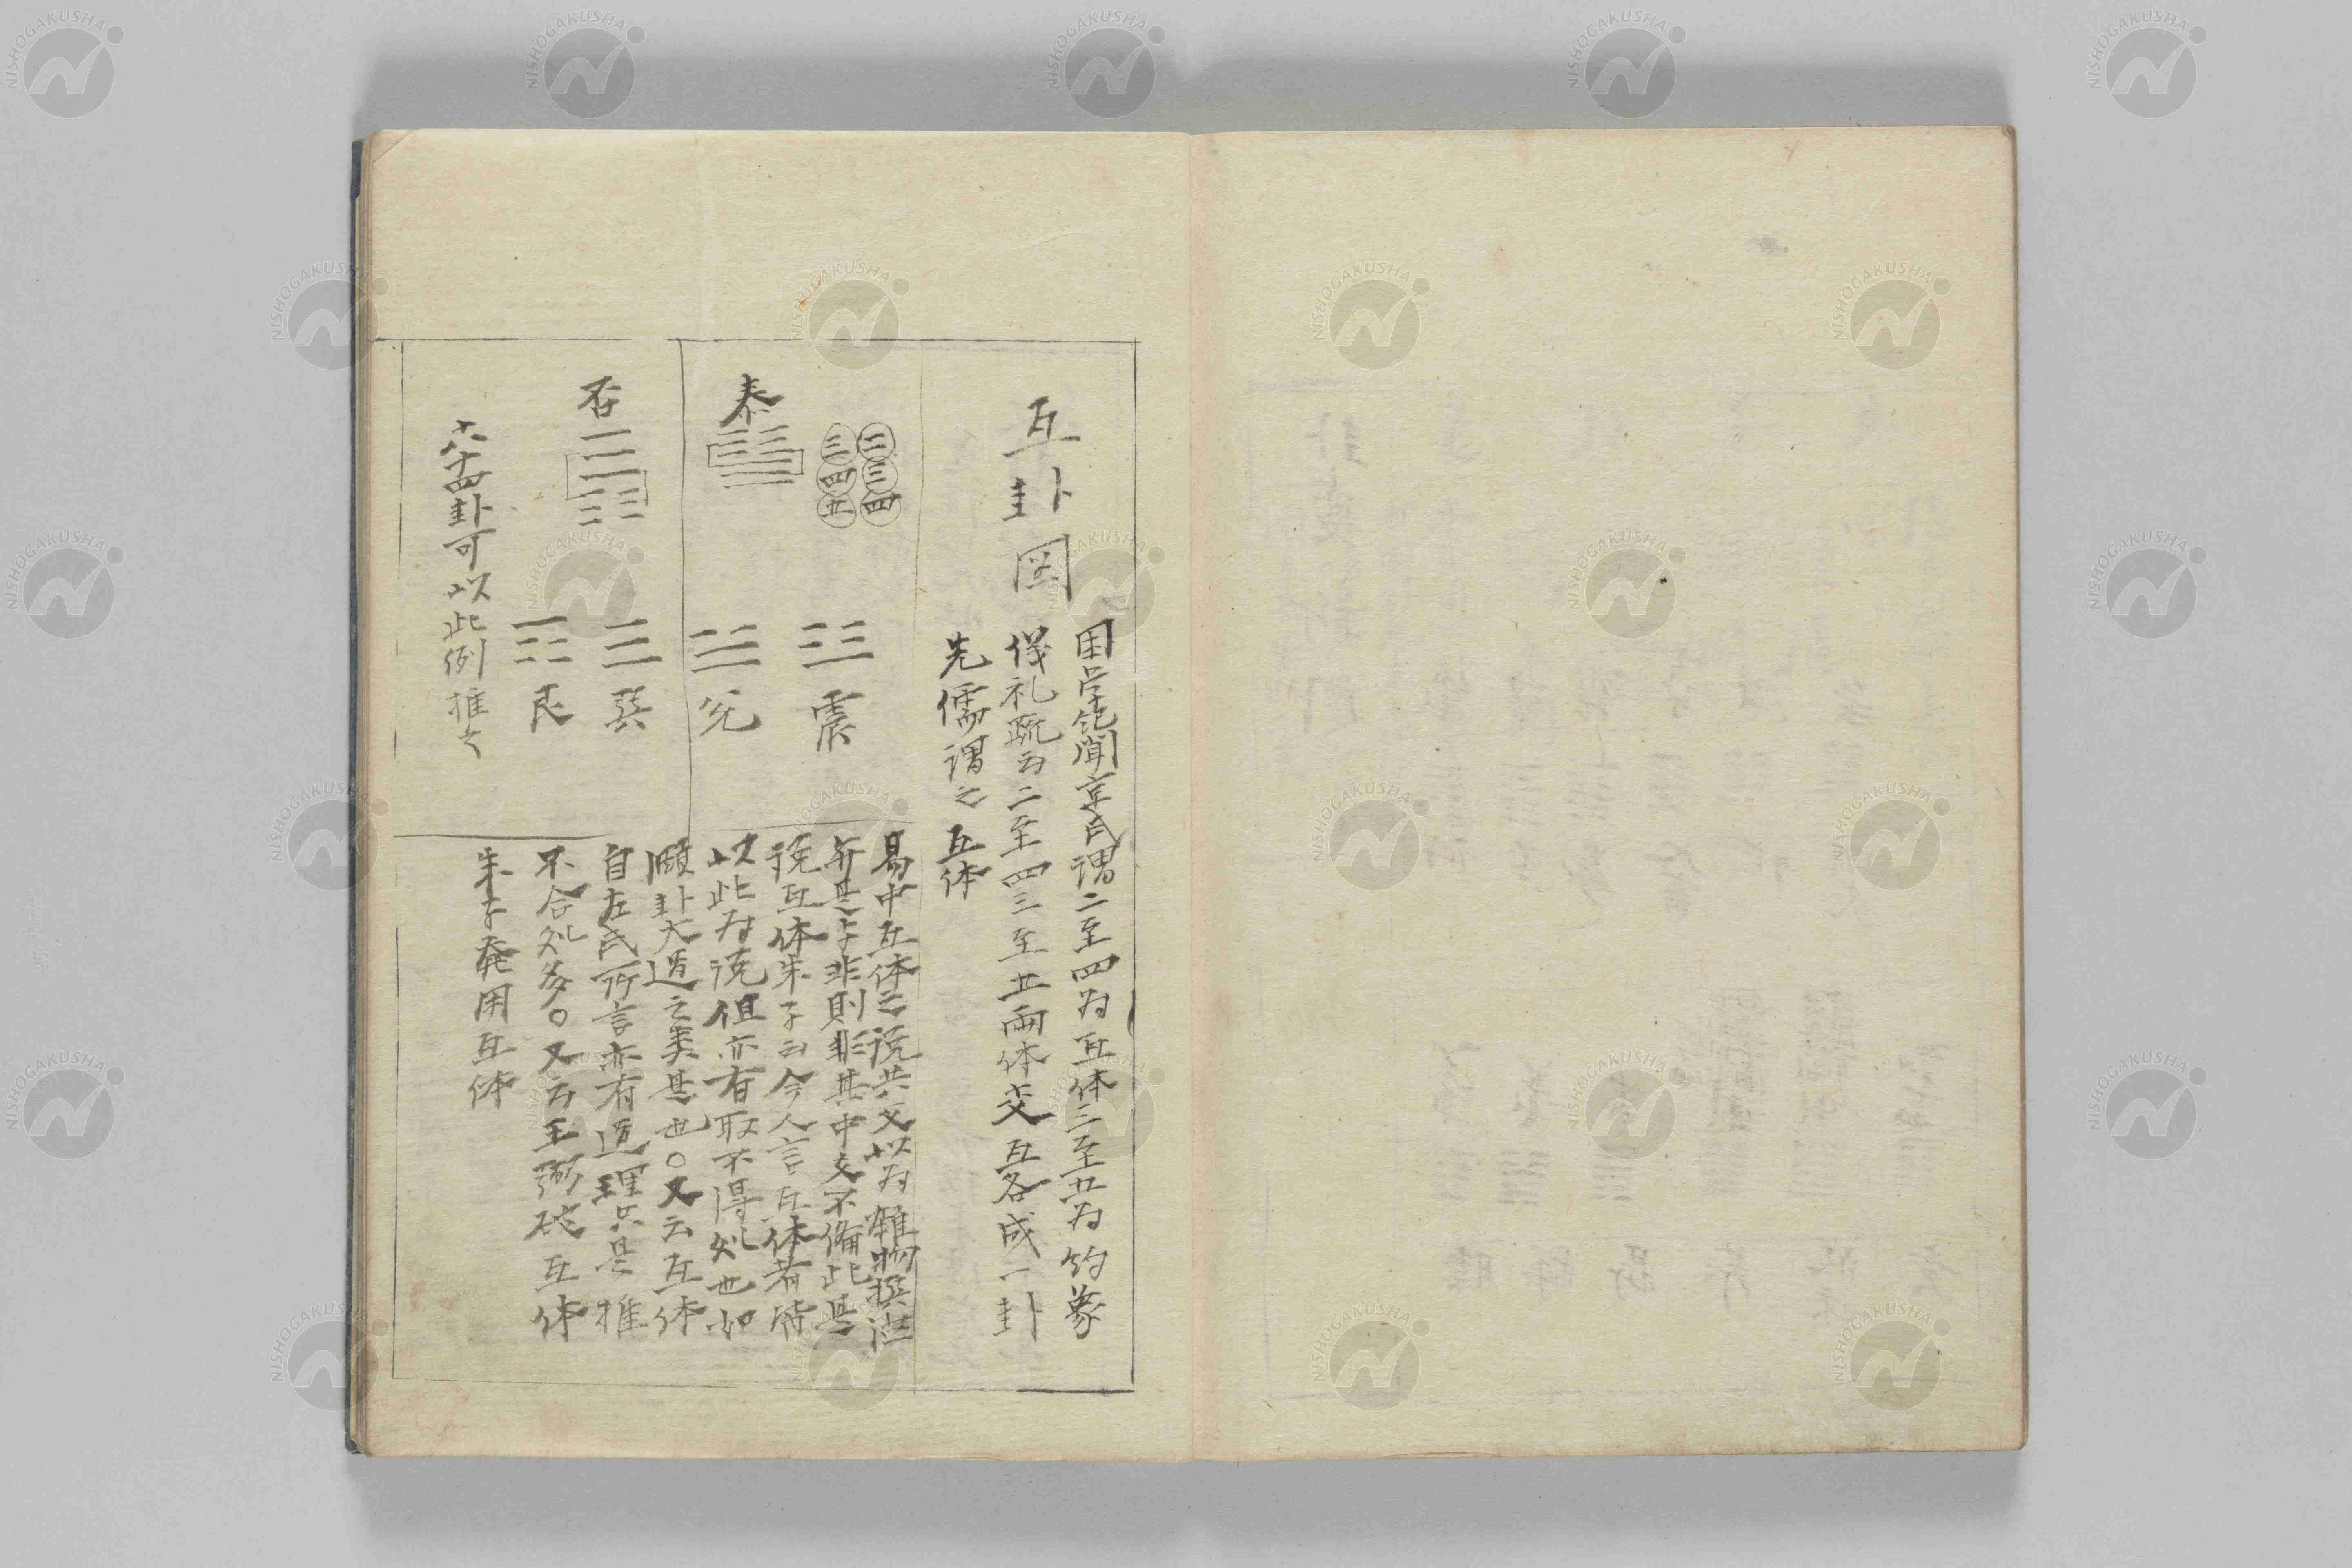 互卦図
困学紀聞京氏謂二至四為互体三至五為約象
儀礼疏云二至四三至五両体交互各成一卦
先儒謂之互体
二三四
三四五
泰
震
兌
否
巽
艮
六十四卦可以此例推之
易中互体之説共父以為雑物撰徳
弁是与非則非其中爻不備此是
説互体朱子云今人言互体者皆
以此為説但亦有取不得処也如
頤卦大過之類是也○又云互体
自左氏所言亦有道理只是推
不合処多○又云王弼破互体
朱子発用互体
NISHOGAKUSHA